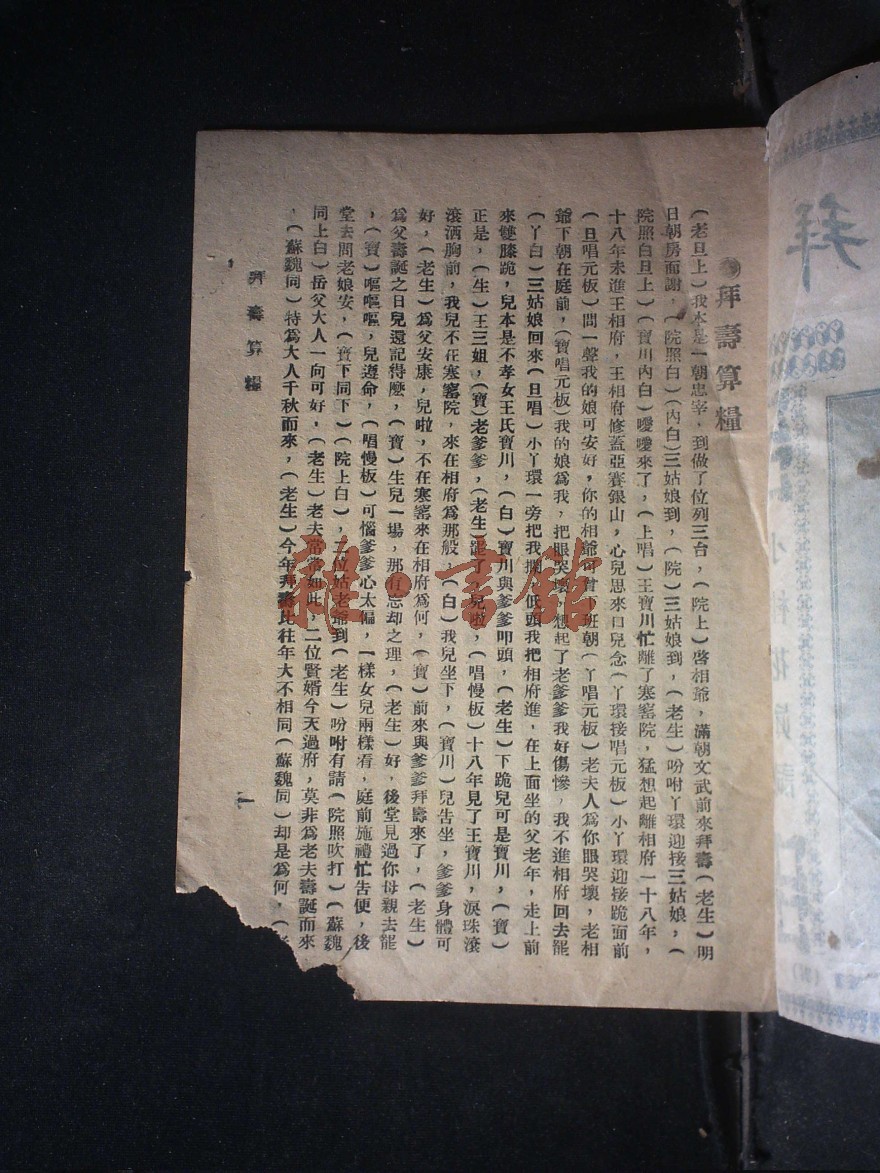 拜
拜壽算糧
(老旦上)我本是一朝忠宰，到做了位列三台，(院上)啓相爺，滿朝文武前來拜壽(老生)明
日朝房面謝，(院照白)(內白)三姑娘到，(院)三姑娘到，(老生)吩咐丫環迎接三姑娘，(
院照白旦上)(寶川內白)噯噯來了，(上唱)王寶川忙離了寒窰院，猛想起離相府一十八年，
十八年未進王相府，王相府修蓋亞賽銀山，心兒思來口兒念(丫環接唱元板)小丫環迎接跪面前
(旦唱元板)問一聲我的娘可安好，你的相爺可曾下班朝(丫唱元板)老夫人爲你眼哭壞，老相
爺下朝在庭前，(寶唱元板)我的娘爲我，把眼哭壞，想起了老爹爹我好傷慘，我不進相府回去罷
(丫白)三姑娘回來(旦唱)小丫環一旁把我攔，低頭我把相府進，在上面坐的父老年，走上前
來雙膝跪，兒本是不孝女王氏寶川，(白)寶川與爹爹叩頭，(老生)下跪兒可是寶川，(寶)
正是，(生)王三姐，(寶)老爹爹，(老生)罷了，兒啦，(唱慢板)十八年見了王寶川，淚珠滾
滾洒胸前，我兒不在寒窰院，來在相府爲那般(白)我兒坐下，(寶川)兒告坐，爹爹身體可
好，(老生)爲父安康，兒啦，不在寒窰來在相府爲何，(寶)前來與爹爹拜壽來了，(老生)
爲父壽誕之日兒還記得麽，(寶)生兒一場，那有忘却之理，(老生)好，後堂見過你母親去罷
，(寶)嘔嘔嘔，兒遵命，(唱慢板)可惱爹爹心太偏，一樣女兒兩樣看，庭前施禮忙告便，後
堂去問老娘安，(寶下同下)(院上白)，二位姑老爺到(老生)吩咐有請(院照吹打)(蘇魏
同上白)岳父大人一向可好，(老生)老夫常常如此，二位賢婿今天過府，莫非爲老夫壽誕而來
，(蘇魏同)特爲大人千秋而來，(老生)今年拜壽比往年大不相同(蘇魏同)却是爲何，(
拜壽算糧
一
雜·書館